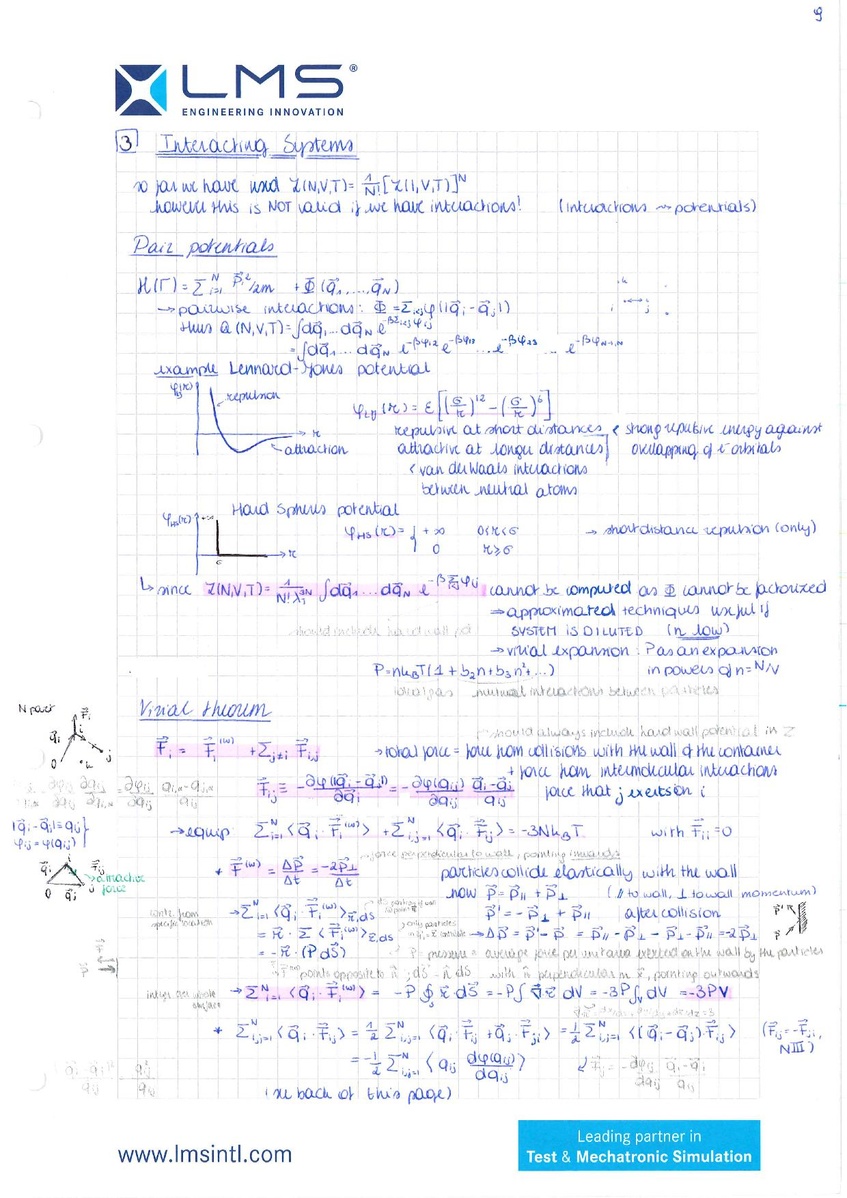 9
LMS®
ENGINEERING INNOVATION
3 Interacting Systems
so far we have used Z(N,V,T)= 1/N! [Z(1,V,T)]^N
however this is NOT valid if we have interactions! (interactions ⇝ potentials)
Pair potentials
H(Γ) = Σ_{i=1}^N p⃗_i²/2m + Φ(q⃗_1, ..., q⃗_N)
→ pairwise interactions: Φ = Σ_{i<j} φ(|q⃗_i - q⃗_j|)
thus Q(N,V,T) = ∫dq⃗_1 ... dq⃗_N e^{-βΣ_{i<j} φ_ij}
= ∫dq⃗_1 ... dq⃗_N e^{-βφ_12} e^{-βφ_13} ... e^{-βφ_23} ... e^{-βφ_{N-1,N}}
example Lennard-Jones potential
φ_ij(r)
repulsion
r
attraction
φ_LJ(r) = ε[(σ/r)^12 - (σ/r)^6]
repulsive at short distances < strong repulsive energy against
attractive at longer distances overlapping of e⁻ orbitals
< van der Waals interactions
between neutral atoms
Hard Spheres potential
φ_HS(r) +∞
σ r
φ_HS(r) = { +∞ 0<r<σ → short distance repulsion (only)
0 r≥σ
↳ since Z(N,V,T) = 1/(N! λ_T^{3N}) ∫dq⃗_1 ... dq⃗_N e^{-β Σ_{i<j} φ_ij} cannot be computed as Φ cannot be factorized
⇒ approximated techniques useful if
should include hard wall pot SYSTEM IS DILUTED (n low)
→ virial expansion: P as an expansion
P = nk_BT(1 + b_2n + b_3n² + ...) in powers of n = N/V
ideal gas mutual interactions between particles
Virial theorem
should always include hard wall potential in Z
F⃗_i = F⃗_i^(w) + Σ_{j≠i} F⃗_ij → total force = force from collisions with the wall of the container
+ force from intermolecular interactions
F⃗_ij ≡ -∂φ(|q⃗_i - q⃗_j|)/∂q⃗_i = -∂φ(q_ij)/∂q_ij (q⃗_i - q⃗_j)/q_ij force that j exerts on i
|q⃗_i - q⃗_j| ≡ q_ij
φ_ij = φ(q_ij)
→ equip Σ_{i=1}^N ⟨q⃗_i · F⃗_i^(w)⟩ + Σ_{i,j=1}^N ⟨q⃗_i · F⃗_ij⟩ = -3Nk_BT with F⃗_ii = 0
attractive force
force perpendicular to wall, pointing inwards
* F⃗^(w) = Δp⃗/Δt = -2p⃗_⊥/Δt particles collide elastically with the wall
now p⃗ = p⃗_∥ + p⃗_⊥ (∥ to wall, ⊥ to wall momentum)
contr. from specific location
→ Σ_{i=1}^N ⟨q⃗_i · F⃗_i^(w)⟩_{r⃗,dS} p⃗' = -p⃗_⊥ + p⃗_∥ after collision
= r⃗ · Σ⟨F⃗_i^(w)⟩_{r⃗,dS} → Δp⃗ = p⃗' - p⃗ = p⃗_∥ - p⃗_⊥ - p⃗_⊥ - p⃗_∥ = -2p⃗_⊥
= -r⃗ · (P dS⃗) P = pressure = average force per unit area exerted on the wall by the particles
points opposite to n⃗; dS⃗ = n⃗ dS with n⃗ perpendicular in r⃗, pointing outwards
integr. over whole surface
→ Σ_{i=1}^N ⟨q⃗_i · F⃗_i^(w)⟩ = -P∮_S r⃗ dS⃗ = -P∫ ∇⃗ r⃗ dV = -3P∫_V dV = -3PV
* Σ_{i,j=1}^N ⟨q⃗_i · F⃗_ij⟩ = 1/2 Σ_{i,j=1}^N ⟨q⃗_i · F⃗_ij + q⃗_j · F⃗_ji⟩ = 1/2 Σ_{i,j=1}^N ⟨(q⃗_i - q⃗_j) · F⃗_ij⟩ (F⃗_ij = -F⃗_ji, NIII)
= -1/2 Σ_{i,j=1}^N ⟨q_ij dφ(q_ij)/dq_ij⟩ F⃗_ij = -∂φ_ij/∂q_ij (q⃗_i - q⃗_j)/q_ij
(see back of this page)
www.lmsintl.com
Leading partner in
Test & Mechatronic Simulation